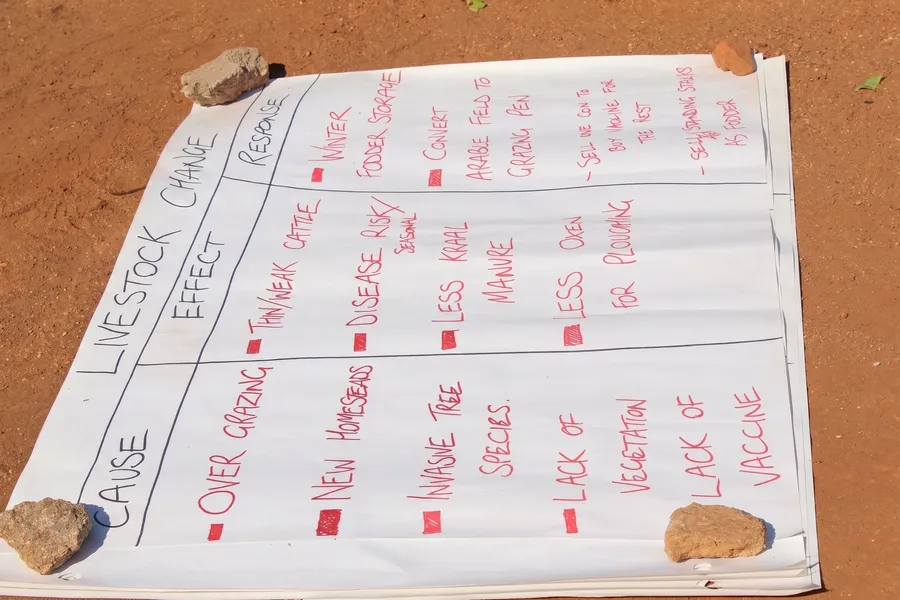 LIVESTOCK CHANGE
CAUSE
OVER GRAZING
NEW HOMESTEADS
INVASIVE TREE
SPECIES.
LACK OF
VEGETATION
LACK OF
VACCINE
EFFECT
THIN/WEAK CATTLE
DISEASE RISK/
SEASONAL
LESS KRAAL
MANURE
LESS OXEN
FOR PLOUGHING
RESPONSE
WINTER
FODDER STORAGE
CONVERT
ARABLE FIELD TO
GRAZING PEN
- SELL ONE COW TO
BUY VACCINE FOR
THE REST
- SELL STANDING STALKS
AS FODDER